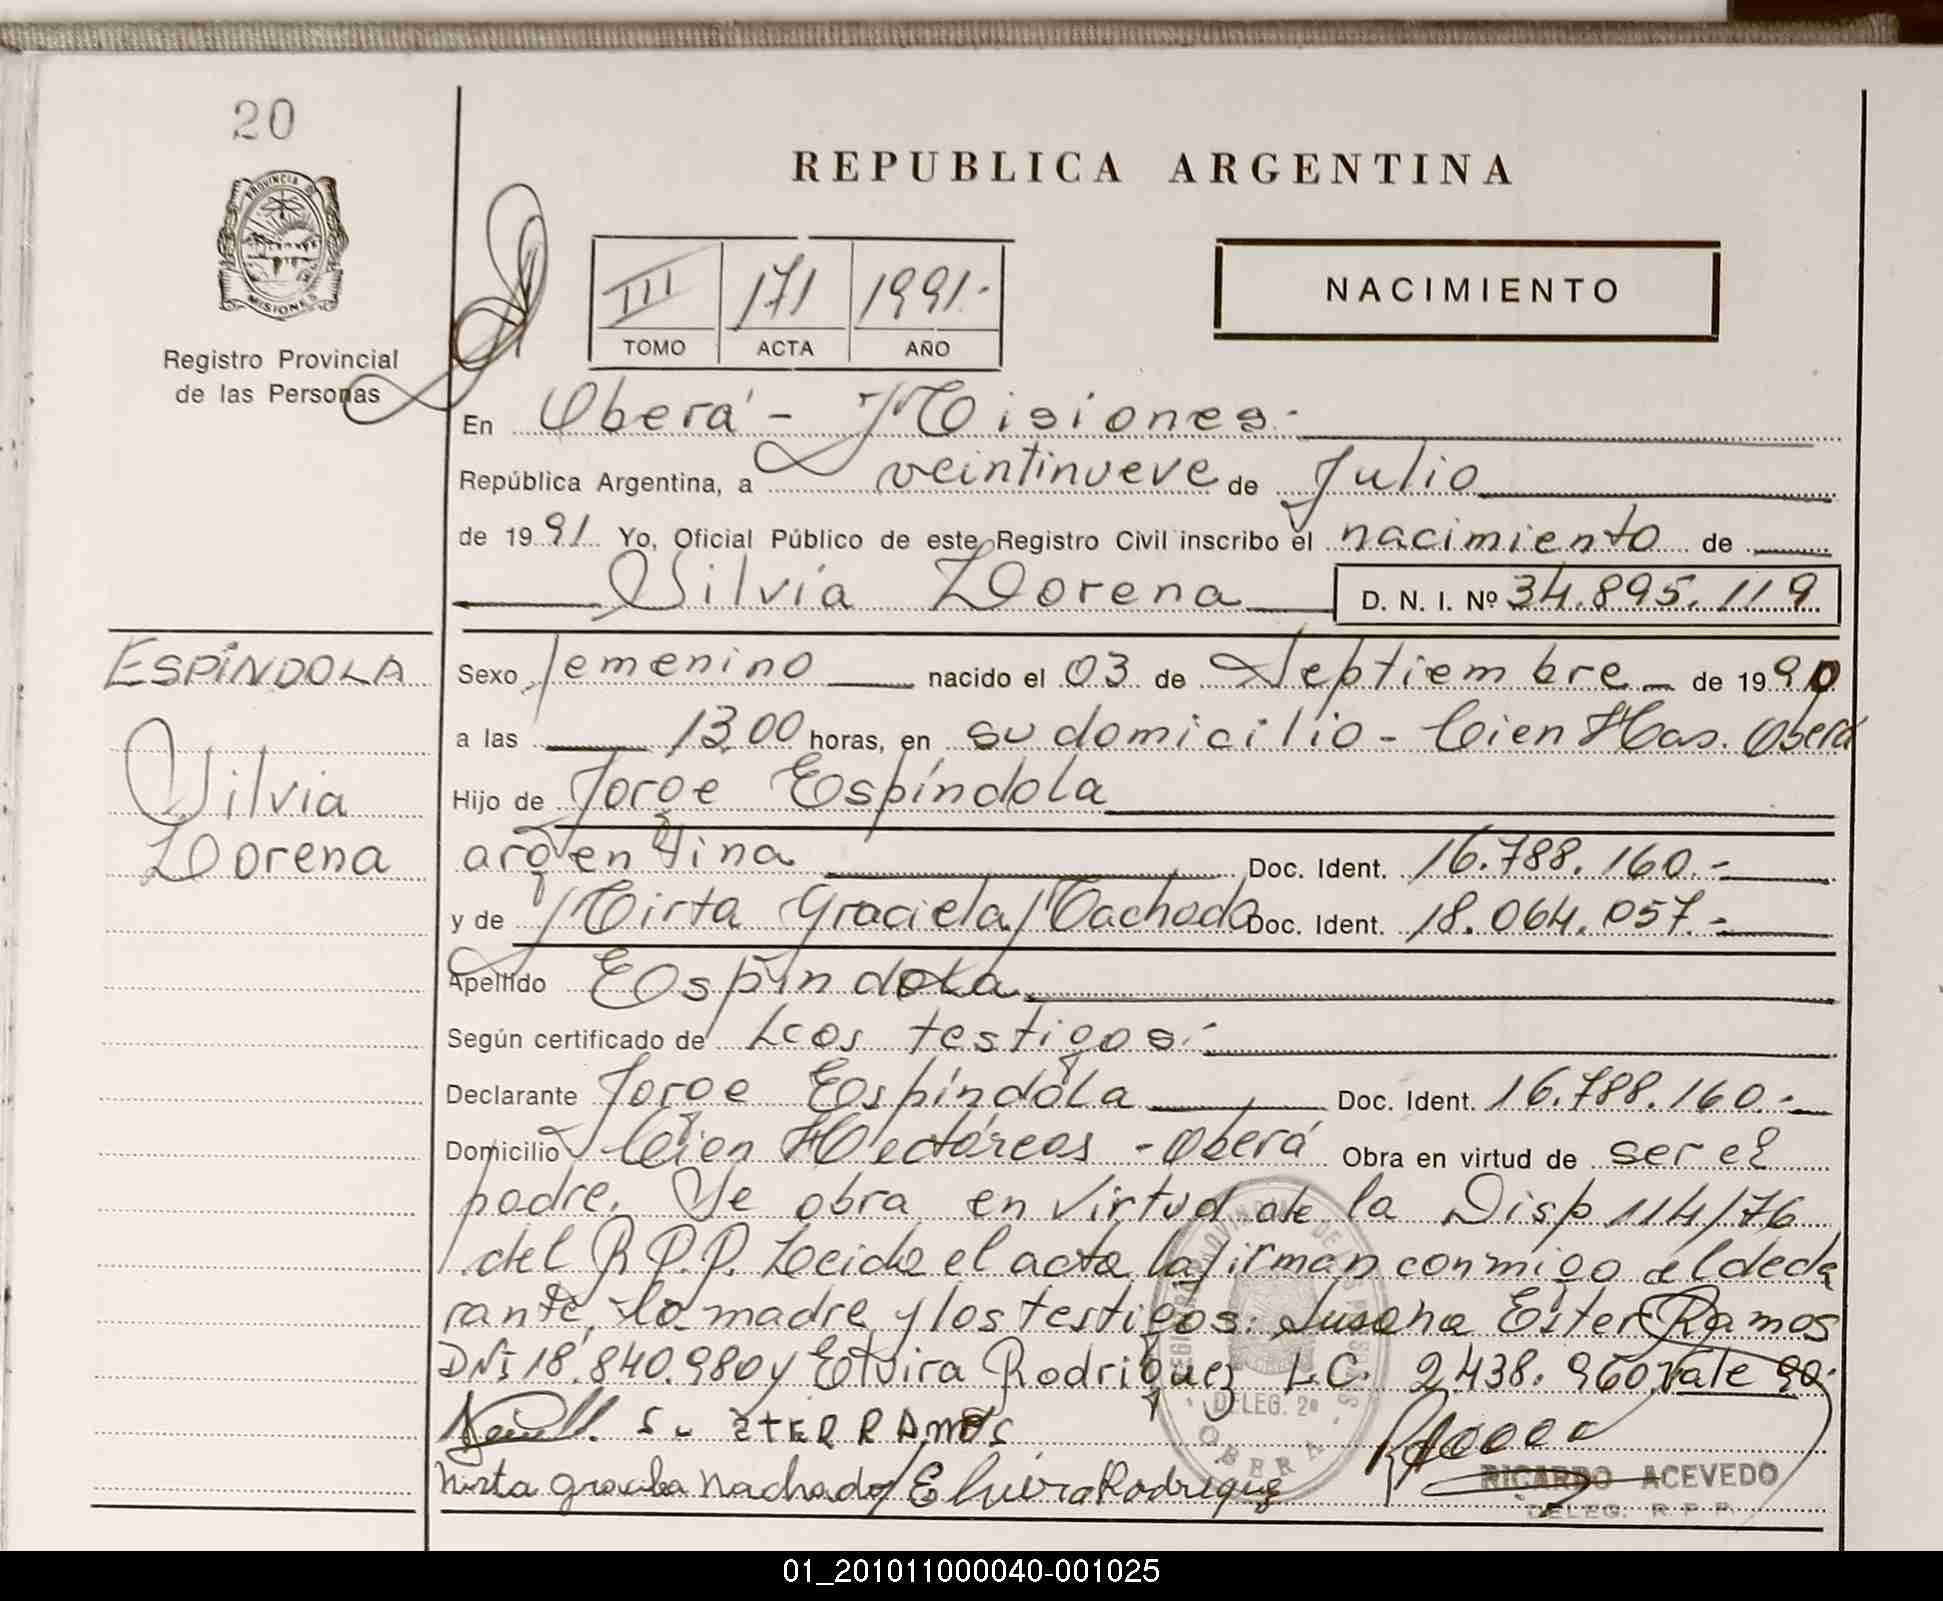 20
REPUBLICA ARGENTINA
PROVINCIA DE
MISIONES
III 171 1991.-
TOMO ACTA AÑO
NACIMIENTO
Registro Provincial
de las Personas
En Oberá - Misiones.-
República Argentina, a veintinueve de Julio
de 1991 Yo, Oficial Público de este Registro Civil inscribo el nacimiento de
Silvia Lorena D. N. I. Nº 34.895.119
ESPÍNDOLA
Silvia
Lorena
Sexo femenino nacido el 03 de Septiembre de 1990
a las 13,00 horas, en su domicilio - Cien Has. Oberá
Hijo de Jorge Espíndola
argentina Doc. Ident. 16.788.160.-
y de Mirta Graciela Machado Doc. Ident. 18.064.057.-
Apellido Espíndola
Según certificado de Los testigos.-
Declarante Jorge Espíndola Doc. Ident. 16.788.160.-
Domicilio Cien Hectáreas - Oberá Obra en virtud de ser el
padre. Se obra en virtud de la Disp 114/76
del R.P.P. Leida el acta la firman conmigo el decla
rante, la madre y los testigos: Susana Ester Ramos
DNI 18.840.980 y Elvira Rodriguez L.C. 2.438.960, vale 90.
REGISTRO PROVINCIAL DE LAS PERSONAS
DELEG. 2ª
OBERA
S. ETER RAMOS
Mirta graciela Machado Elvira Rodrigue
RICARDO ACEVEDO
DELEG. R. P. P.
01_201011000040-001025